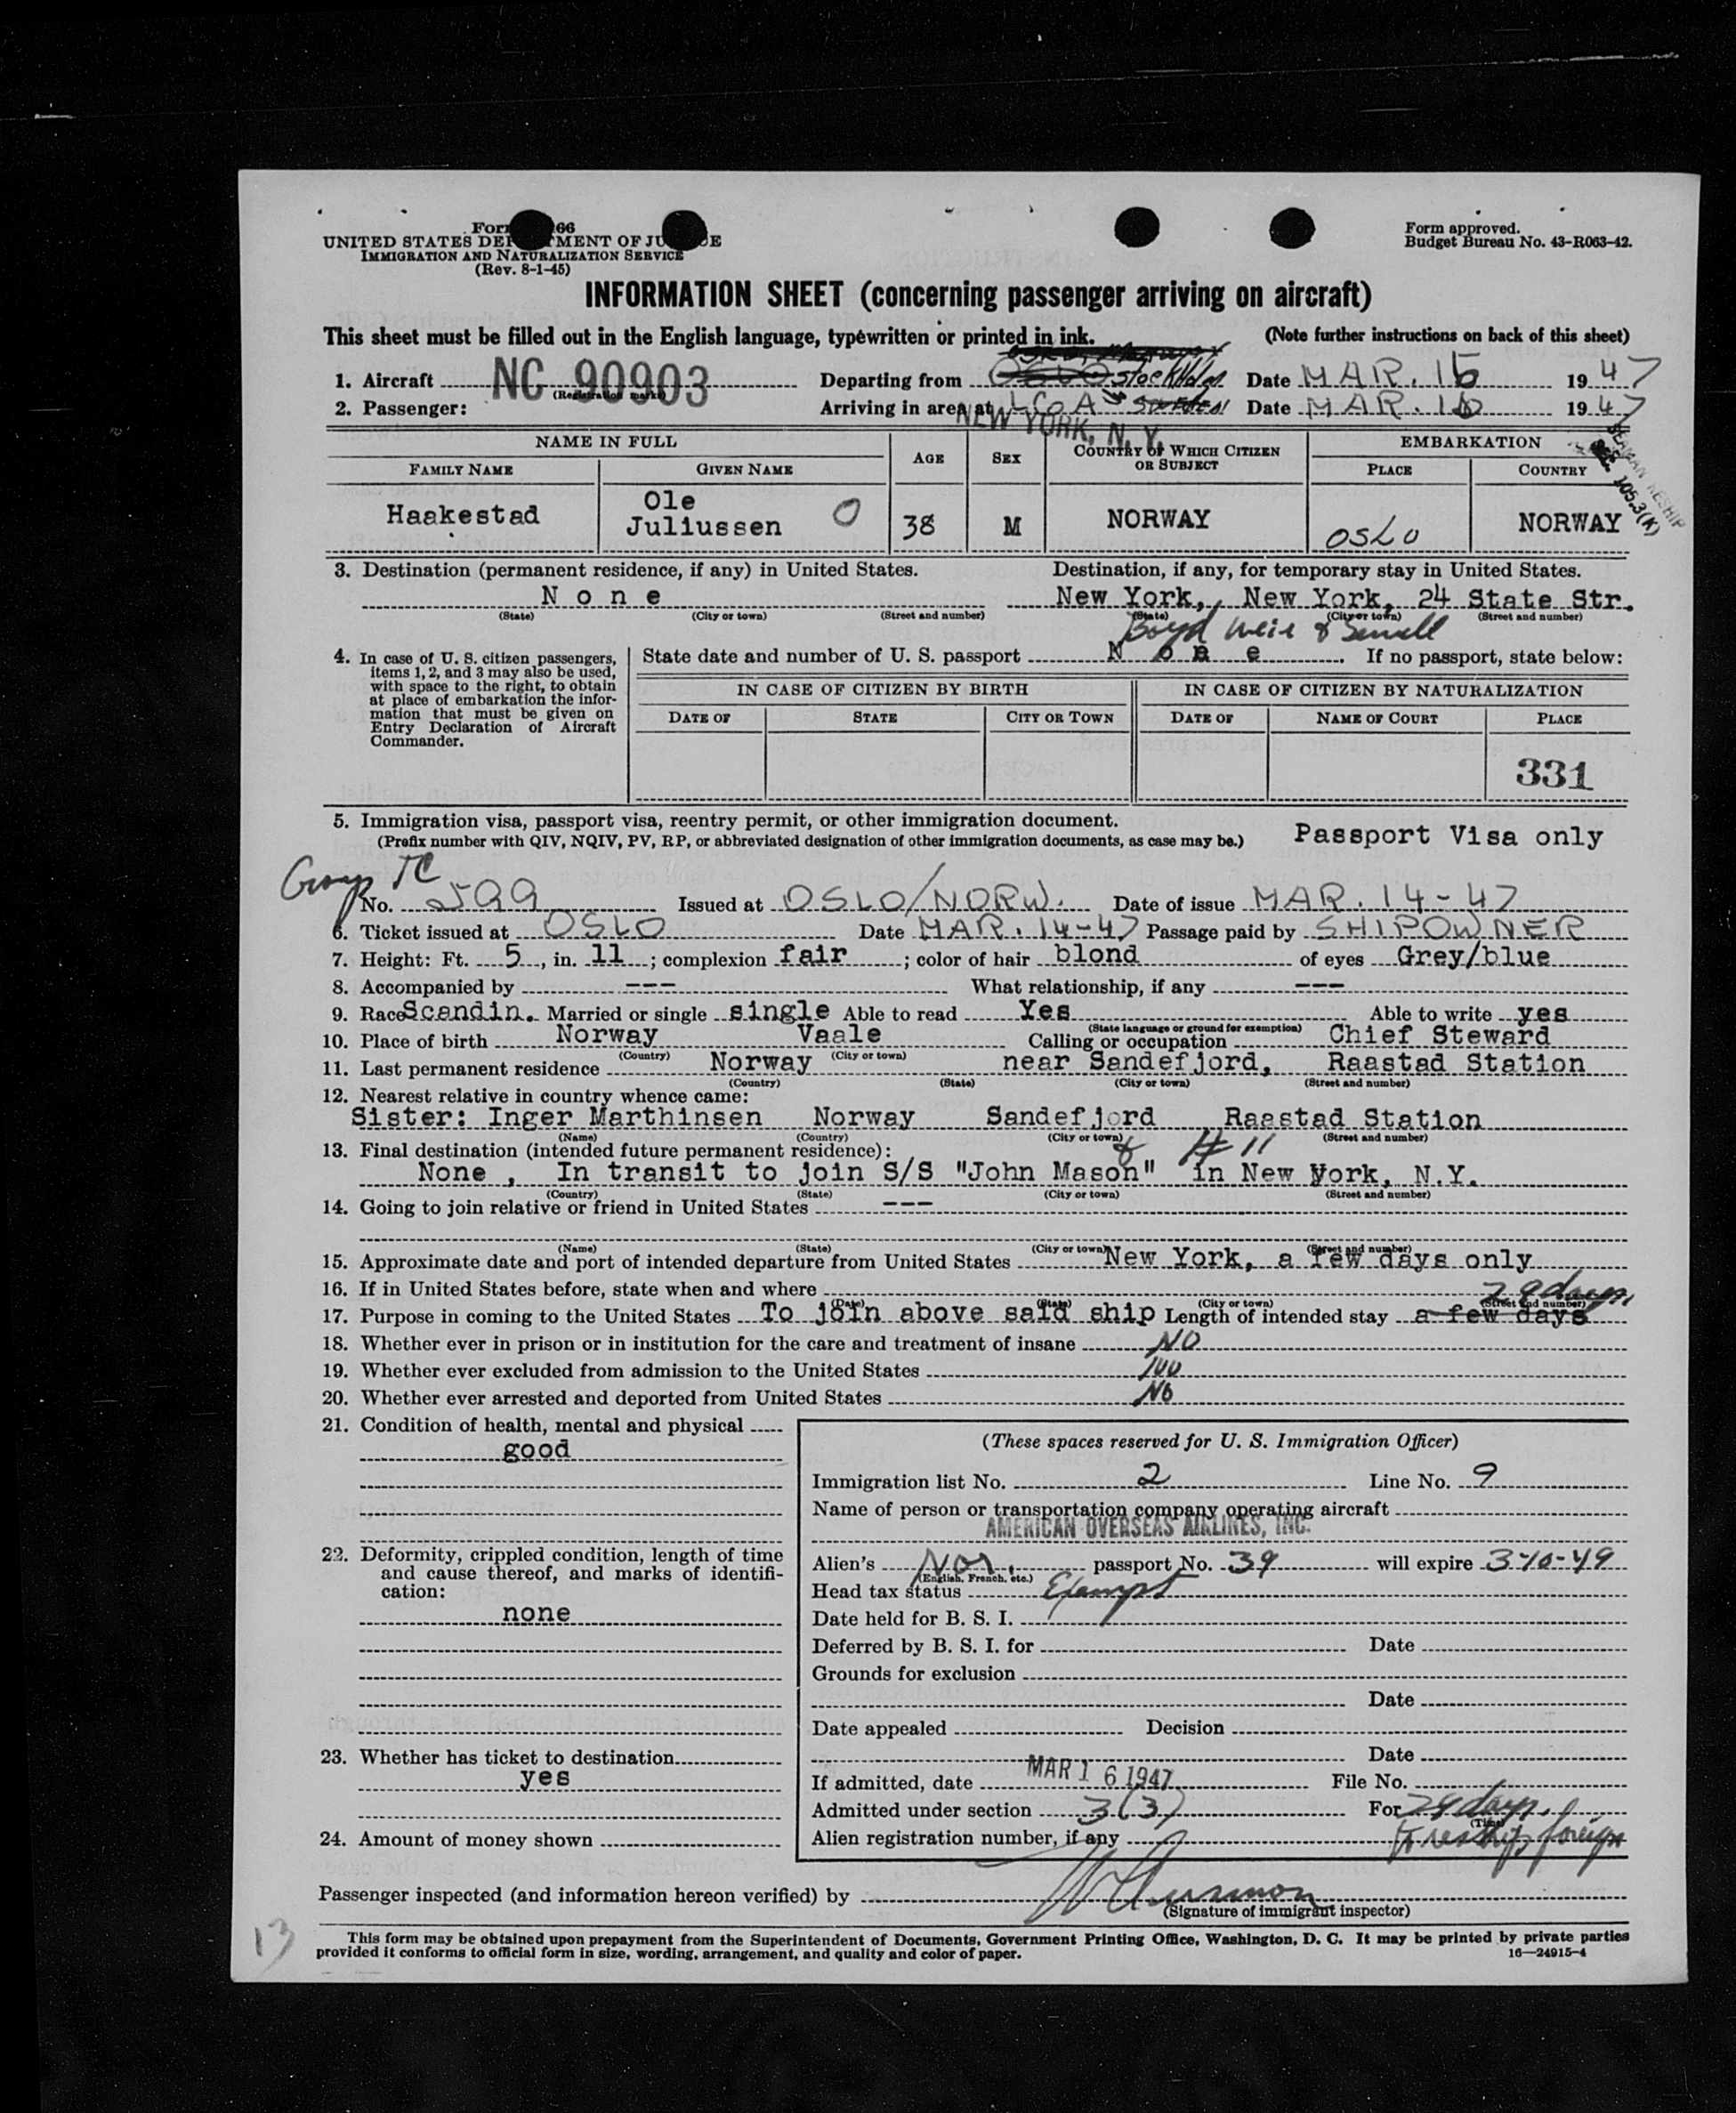 Form 66
UNITED STATES DEPARTMENT OF JUSTICE
IMMIGRATION AND NATURALIZATION SERVICE
(Rev. 8-1-45)
Form approved.
Budget Bureau No. 43-R063-42.
INFORMATION SHEET (concerning passenger arriving on aircraft)
This sheet must be filled out in the English language, typewritten or printed in ink. (Note further instructions on back of this sheet)
1. Aircraft NC 90903 (Registration marks) Departing from OSLO Stockholm Date MAR. 15 1947
2. Passenger: Arriving in area at LGA Sweden Date MAR. 16 1947
NEW YORK, N. Y.
NAME IN FULL AGE SEX COUNTRY OF WHICH CITIZEN OR SUBJECT EMBARKATION
FAMILY NAME GIVEN NAME PLACE COUNTRY
Haakestad Ole Juliussen O 38 M NORWAY OSLO NORWAY
105.3(K)
3. Destination (permanent residence, if any) in United States. Destination, if any, for temporary stay in United States.
None New York, New York, 24 State Str.
(State) (City or town) (Street and number) (State) (City or town) (Street and number)
Boyd Weir & Sewell
4. In case of U. S. citizen passengers, items 1, 2, and 3 may also be used, with space to the right, to obtain at place of embarkation the information that must be given on Entry Declaration of Aircraft Commander.
State date and number of U. S. passport None. If no passport, state below:
IN CASE OF CITIZEN BY BIRTH IN CASE OF CITIZEN BY NATURALIZATION
DATE OF STATE CITY OR TOWN DATE OF NAME OF COURT PLACE
331
5. Immigration visa, passport visa, reentry permit, or other immigration document.
(Prefix number with QIV, NQIV, PV, RP, or abbreviated designation of other immigration documents, as case may be.) Passport Visa only
Group TC
No. 599 Issued at OSLO/NORW. Date of issue MAR. 14-47
6. Ticket issued at OSLO Date MAR. 14-47 Passage paid by SHIPOWNER
7. Height: Ft. 5, in. 11; complexion fair; color of hair blond of eyes Grey/blue
8. Accompanied by --- What relationship, if any ---
9. Race Scandin. Married or single single Able to read Yes Able to write yes
(State language or ground for exemption)
10. Place of birth Norway Vaale Calling or occupation Chief Steward
(Country) (City or town)
11. Last permanent residence Norway near Sandefjord, Raastad Station
(Country) (State) (City or town) (Street and number)
12. Nearest relative in country whence came:
Sister: Inger Marthinsen Norway Sandefjord Raastad Station
(Name) (Country) (City or town) (Street and number)
13. Final destination (intended future permanent residence):
None, In transit to join S/S "John Mason" in New York, N.Y.
(Country) (State) (City or town) (Street and number)
14. Going to join relative or friend in United States ---
(Name) (State) (City or town) (Street and number)
15. Approximate date and port of intended departure from United States New York, a few days only
16. If in United States before, state when and where
(Date) (State) (City or town) (Street and number)
29 days
17. Purpose in coming to the United States To join above said ship Length of intended stay a few days
18. Whether ever in prison or in institution for the care and treatment of insane NO
19. Whether ever excluded from admission to the United States NO
20. Whether ever arrested and deported from United States NO
21. Condition of health, mental and physical
good
22. Deformity, crippled condition, length of time and cause thereof, and marks of identification:
none
23. Whether has ticket to destination
yes
24. Amount of money shown
(These spaces reserved for U. S. Immigration Officer)
Immigration list No. 2 Line No. 9
Name of person or transportation company operating aircraft
AMERICAN OVERSEAS AIRLINES, INC.
Alien's Nor. passport No. 39 will expire 3-10-49
(English, French, etc.)
Head tax status Exempt
Date held for B. S. I.
Deferred by B. S. I. for Date
Grounds for exclusion
Date
Date appealed Decision
Date
If admitted, date MAR 16 1947 File No.
Admitted under section 3(3) For 29 days.
(Time)
Alien registration number, if any to reship foreign
Passenger inspected (and information hereon verified) by
(Signature of immigrant inspector)
13
This form may be obtained upon prepayment from the Superintendent of Documents, Government Printing Office, Washington, D. C. It may be printed by private parties
provided it conforms to official form in size, wording, arrangement, and quality and color of paper. 16—24915-4